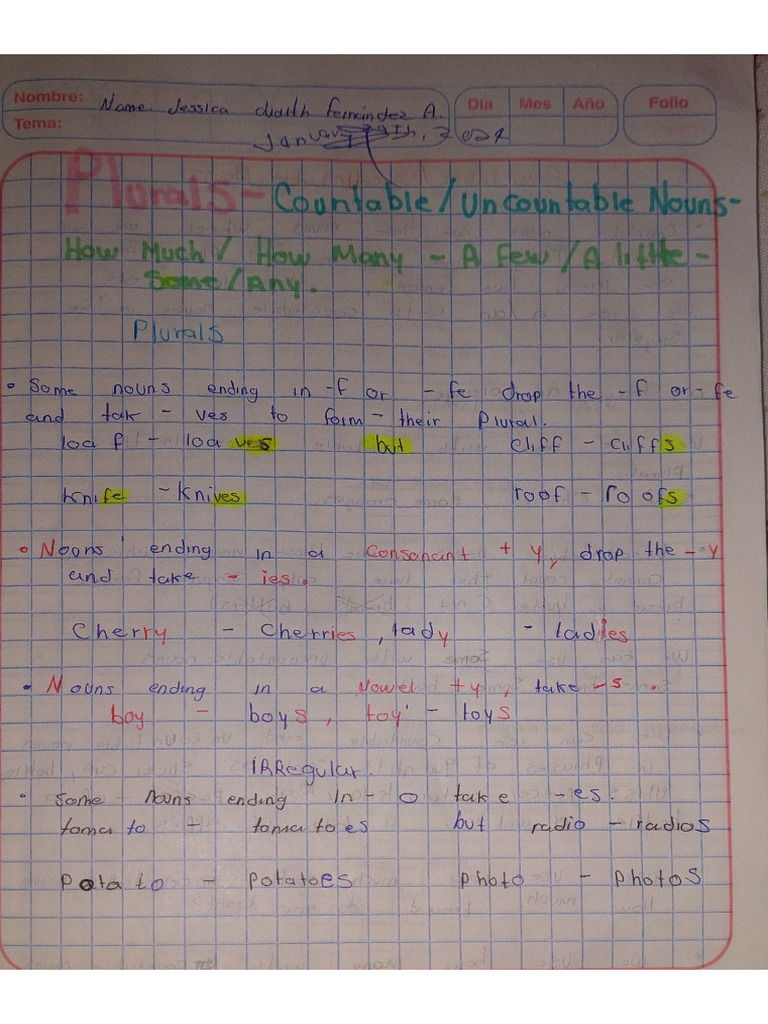 Nombre: Name. Jessica Fernández A. Día Mes Año Folio
Tema: January
Plurals - Countable / Uncountable Nouns -
How Much / How Many - A few / A little -
Some / Any.
Plurals
• Some nouns ending in -f or -fe drop the -f or -fe
and tak - ves to form - their Plural.
loaf - loaves but cliff - cliffs
knife - knives roof - roofs
• Nouns ending in a consonant + y, drop the -y
and take - ies.
Cherry - Cherries, lady - ladies
• Nouns ending in a vowel + y, take -s.
boy - boys, toy - toys
IRRegular.
• Some nouns ending in -o take -es.
tomato - tomatoes but radio - radios
Potato - Potatoes Photo - Photos